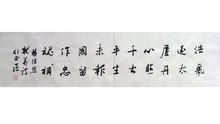 浩氣
還太
虛丹
心照
千古
平生
未報
國留
作忠
魂補
就義詩